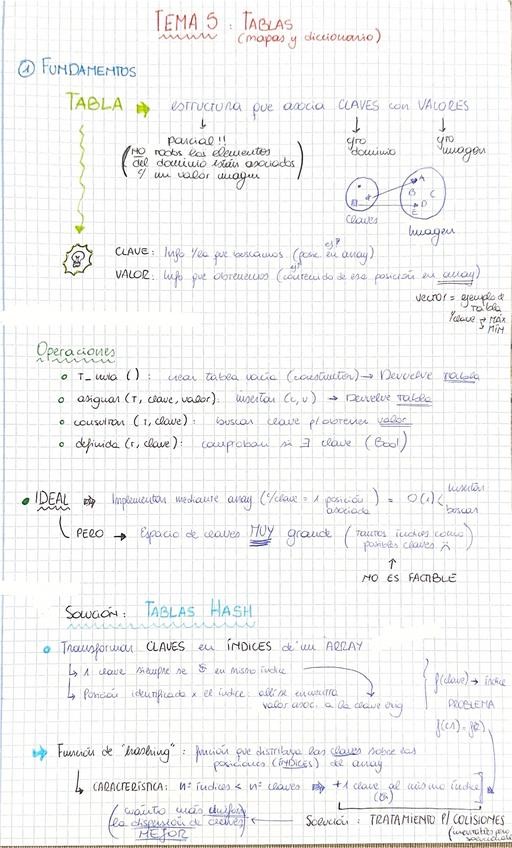 TEMA 5: TABLAS
(mapas y diccionario)
① FUNDAMENTOS
TABLA → estructura que asocia CLAVES con VALORES
parcial!!
(NO todos los elementos
del dominio están asociados
c/ un valor imagen)
cjto
dominio
cjto
imagen
A
B C
D
E
Claves
Imagen
CLAVE: Info q buscamos (posic. en array)
VALOR: Info que obtenemos (contenido de esa posición en array)
vector = ejemplo de
tabla
clave → MÁX
MIN
Operaciones
• T_nula (): crear tabla vacía (constructor) → Devuelve tabla
• asignar (T, clave, valor): insertar (c, v) → Devuelve tabla
• consultar (T, clave): buscar clave p/ obtener valor
• definida (T, clave): comprobar si ∃ clave (Bool)
• IDEAL ⇒ Implementar mediante array (c/clave = 1 posición asociada) = O(1) < insertar
buscar
PERO → Espacio de claves MUY grande (tantos índices como
posibles claves)
↑
NO ES FACTIBLE
Solución: TABLAS HASH
• Transformar CLAVES en ÍNDICES de un ARRAY
↳ 1 clave siempre se en mismo índice
↳ Posición identificada x el índice: allí se encuentra
valor asoc. a la clave orig
f(clave) → índice
PROBLEMA
f(c1) = f(c2)
⇒ Función de "hashing": función que distribuya las claves sobre las
posiciones (ÍNDICES) del array
↳ CARACTERÍSTICA: nº índices < nº claves ⇒ +1 clave al mismo índice
(cuánto más uniforme
la dispersión de claves
MEJOR)
Solución: TRATAMIENTO P/ COLISIONES
(inevitables pero
solucionables)